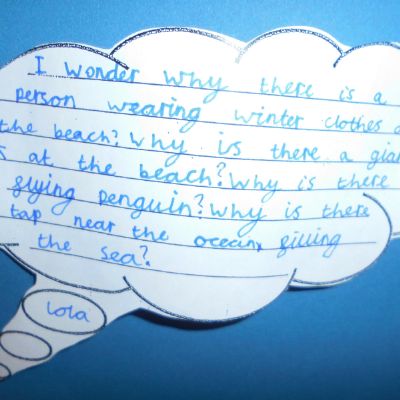 I wonder why there is a
person wearing winter clothes
the beach? Why is there a
at the beach? Why is there
flying penguin? Why is there
tap near the ocean, filling
the sea?
Lola